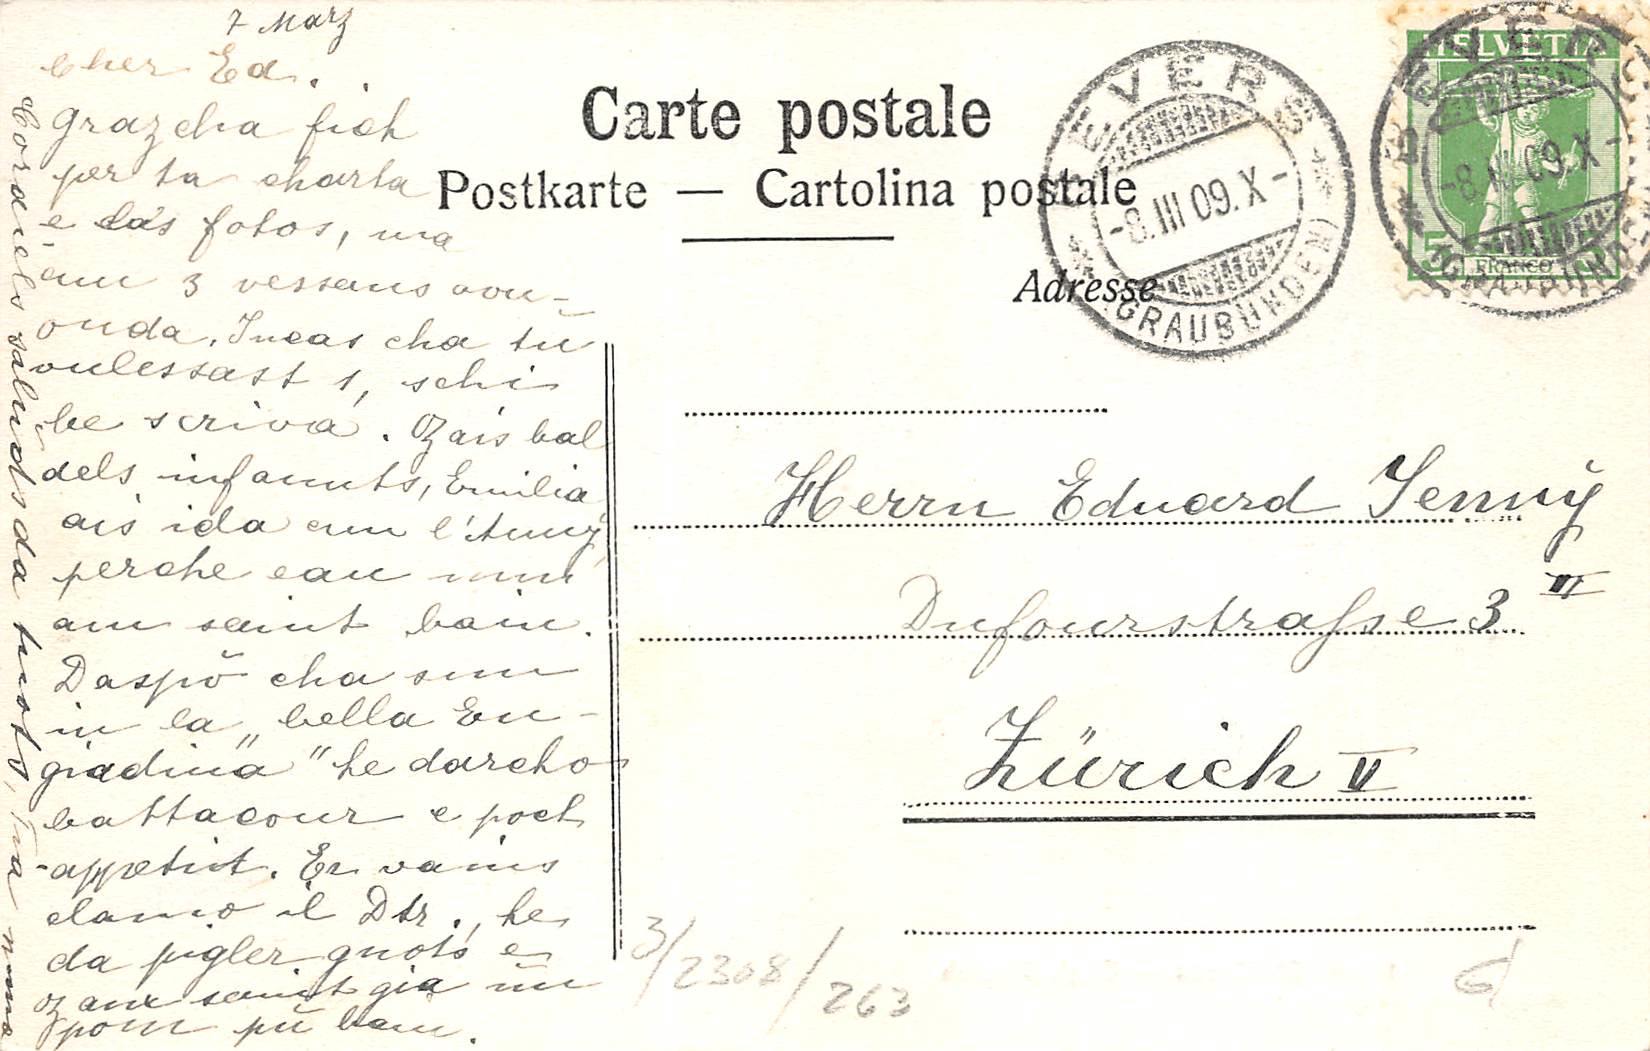 7 März
Cher Ed.
Grazcha fich
per ta charta
e las fotos, ma
am 3 vessans avu-
onda. Incas cha tü
vulessast 1, schi
he scrivà. Oz ais bal
dels infaunts, Emilia
ais ida cun l'Anny
perche eau nun
am saint bain.
Daspö cha sun
in la "bella En-
giadina" he darcho
battacour e poch
appetit. Er vains
clamo il Dtr., he
da pigler guots e
oz am saint già ün
pom pü bain.
Cordiels salüds da tuots, Tia mma
Carte postale
Postkarte — Cartolina postale
Adresse
BEVERS
-8.III 09.X-
(GRAUBÜNDEN)
HELVETIA
5 FRANCO
BEVERS
-8.III 09.X-
(GRAUBÜNDEN)
Herrn Eduard Jenny
Dufourstrasse 3 III
Zürich V
3/2308/263